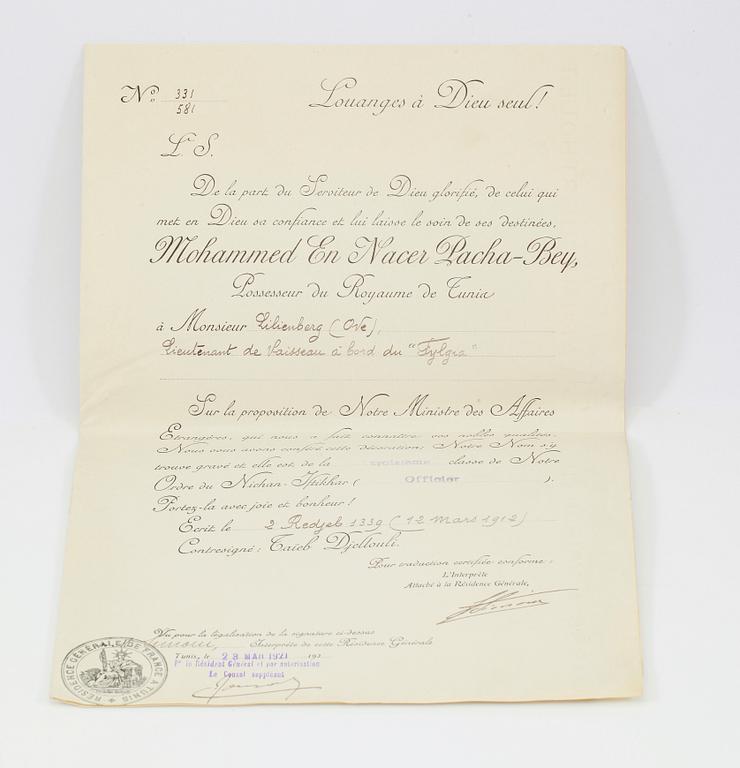 Nº 331
581
Louanges à Dieu seul!
L. S.
De la part du Serviteur de Dieu glorifié, de celui qui
met en Dieu sa confiance et lui laisse le soin de ses destinées,
Mohammed En Nacer Pacha-Bey,
Possesseur du Royaume de Tunis
à Monsieur Lilienberg (Ove),
Lieutenant de Vaisseau à bord du "Fylgia"
Sur la proposition de Notre Ministre des Affaires
Etrangères, qui nous a fait connaître vos nobles qualités.
Nous vous avons conféré cette décoration; Notre Nom s'y
trouve gravé et elle est de la troisième classe de Notre
Ordre du Nichan-Iftikhar ( Officier ).
Portez-la avec joie et bonheur!
Ecrit le 2 Redjeb 1339 (12 Mars 1912)
Contresigné: Taïeb Djellouli.
Pour traduction certifiée conforme:
L'Interprète
Attaché à la Résidence Générale,
Vu pour la légalisation de la signature ci-dessus
Interprète de cette Résidence Générale
Tunis, le 23 MAR 1921 192
Pr le Résident Général et par autorisation
Le Consul suppléant
RÉSIDENCE GÉNÉRALE DE FRANCE A TUNIS